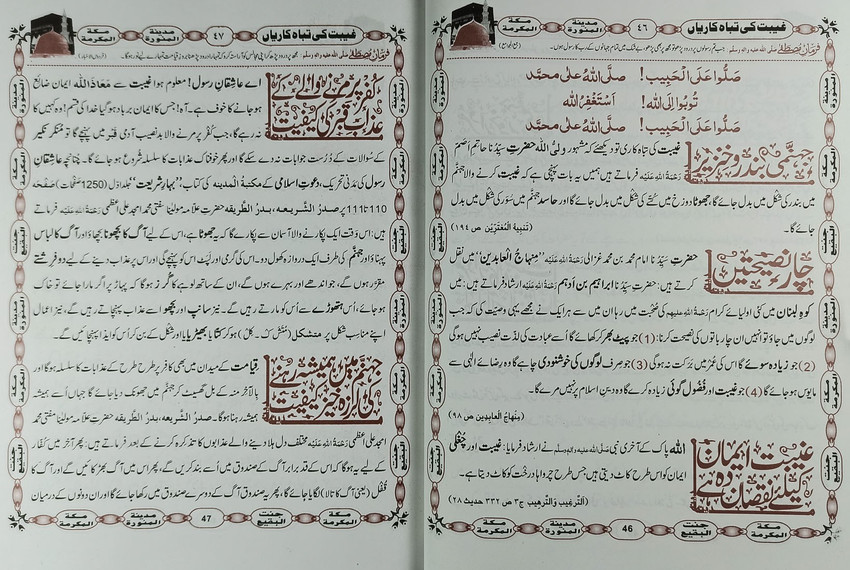 غیبت کی تباہ کاریاں
٤٦
مدینۃ المنورۃ
مکۃ المکرمۃ
فرمانِ مصطفےٰ صلی اللہ علیہ والہ وسلم: جب تم رسولوں پر درود پڑھو تو مجھ پر بھی پڑھو، بے شک میں تمام جہانوں کے رب کا رسول ہوں۔
صَلُّوا عَلَی الْحَبِیب! صلَّی اللہُ علٰی محمَّد
تُوبُوا اِلَی اللہ! اَسْتَغْفِرُ اللہ
صَلُّوا عَلَی الْحَبِیب! صلَّی اللہُ علٰی محمَّد
جہنَّمی بندر و خنزیر
غیبت کی تباہ کاری تو دیکھئے کہ مشہور ولیُّ اللہ حضرتِ سیِّدُنا حاتمِ اَصَم
رَحْمَۃُ اللہِ عَلَیْہ فرماتے ہیں ہمیں یہ بات پہنچی ہے کہ غیبت کرنے والا جہنَّم
میں بندر کی شکل میں بدل جائے گا، جھوٹا دوزخ میں کتّے کی شکل میں بدل جائے گا اور حاسد جہنَّم میں سُوَر کی شکل میں بدل
جائے گا۔ (تَنبِیہُ الْمُغتَرِّیْن ص ١٩٤)
چار نصیحتیں
حضرتِ سیِّدُنا امام محمد بن محمد غزالی رَحْمَۃُ اللہِ عَلَیْہ ’’مِنہاجُ العابِدِین‘‘ میں نقل
کرتے ہیں: حضرتِ سیِّدُنا ابراہیم بن اَدہَم رَحْمَۃُ اللہِ عَلَیْہ ارشاد فرماتے ہیں: میں
کوہِ لبنان میں کئی اولیائے کرام رَحْمَۃُ اللہِ علیہم کی صُحبت میں رہا ان میں سے ہر ایک نے مجھے یہی وصیّت کی کہ جب
لوگوں میں جاؤ تو انہیں ان چار باتوں کی نصیحت کرنا: (1) جو پیٹ بھر کر کھائے گا اُسے عبادت کی لذّت نصیب نہیں ہوگی
(2) جو زیادہ سوئے گا اس کی عُمْر میں بَرَکت نہ ہوگی (3) جو صرف لوگوں کی خوشنودی چاہے گا وہ رِضائے الٰہی سے
مایوس ہو جائے گا (4) جو غیبت اور فُضُول گوئی زیادہ کرے گا وہ دینِ اسلام پر نہیں مرے گا۔
(مِنہاجُ الْعابِدِین ص ٩٨)
غیبت ایمان کیلئے نقصان دہ ہے
اللہ پاک کے آخِری نبی صلی اللہ علیہ والہ وسلم نے ارشاد فرمایا: غیبت اور چُغْلی
ایمان کو اس طرح کاٹ دیتی ہیں جس طرح چرواہا درخت کو کاٹ دیتا ہے۔
(اَلتَّرغِیب وَالتَّرھِیب ج٣ ص ٣٣٢ حدیث ٢٨)
مکۃ المکرمۃ
جنت البقیع
46
مدینۃ المنورۃ
غیبت کی تباہ کاریاں
٤٧
مدینۃ المنورۃ
مکۃ المکرمۃ
فرمانِ مصطفےٰ صلی اللہ علیہ والہ وسلم: مجھ پر درود پڑھ کر اپنی مجالس کو آراستہ کرو کہ تمہارا درود پڑھنا بروزِ قیامت تمہارے لیے نور ہوگا۔
کُفْر پر مرنے والے کے عذابِ قبر کی کیفیت
اے عاشِقانِ رسول! معلوم ہوا غیبت سے مَعَاذَ اللہ ایمان ضائع
ہو جانے کا خوف ہے۔ آہ! جس کا ایمان برباد ہو گیا خدا کی قسم! وہ کہیں کا
نہ رہے گا، جب کُفْر پر مرنے والا بدنصیب آدمی قَبْر میں پہنچے گا تو مُنکَر نکیر
کے سُوالات کے دُرُست جوابات نہ دے سکے گا اور پھر خوفناک عذابات کا سلسلہ شُروع ہو جائے گا۔ چُنانچِہ عاشِقانِ
رسول کی مَدَنی تحریک، دعوتِ اسلامی کے مکتبۃُ المدینہ کی کتاب، ’’بہارِ شریعت‘‘ جلد اوّل (1250 صَفَحات) صَفْحَہ
110 تا 111 پر صدرُ الشَّریعہ، بدرُ الطَّریقہ حضرتِ علّامہ مولیٰنا مفتی محمد امجد علی اعظمی رَحْمَۃُ اللہِ عَلَیْہ فرماتے
ہیں: اس وَقْت ایک پکارنے والا آسمان سے پکارے گا کہ یہ جھوٹا ہے، اس کے لیے آگ کا بچھونا بچھاؤ اور آگ کا لباس
پہناؤ اور جہنَّم کی طرف ایک دروازہ کھول دو۔ اس کی گرمی اور لَپَٹ اس کو پہنچے گی اور اس پر عذاب دینے کے لیے دو فِرِشتے
مقرّر ہوں گے، جو اندھے اور بہرے ہوں گے، ان کے ساتھ لوہے کا گُرز ہوگا کہ پہاڑ پر اگر مارا جائے تو خاک
ہو جائے، اُس ہتھوڑے سے اُس کو مارتے رہیں گے۔ نیز سانپ اور بچھو اسے عذاب پہنچاتے رہیں گے، نیز اعمال
اپنے مناسب شکل پر متشکل ہو کر کتّا یا بھیڑیا یا اور شکل کے بن کر اُس کو ایذا پہنچائیں گے۔
جہنّم میں ہمیشہ رہنے کی لرزہ خیز کیفیت
قِیامت کے میدان میں بھی کافر پر طرح طرح کے عذابات کا سلسلہ ہوگا اور
بالآخر منہ کے بل گھسیٹ کر جہنَّم میں جھونک دیا جائے گا جہاں اُسے ہمیشہ
ہمیشہ رہنا ہوگا۔ صدرُ الشَّریعہ، بدرُ الطَّریقہ حضرتِ علّامہ مولیٰنا مفتی محمد
امجد علی اعظمی رَحْمَۃُ اللہِ عَلَیْہ مختلف دل ہلا دینے والے عذابوں کا تذکرہ کرنے کے بعد فرماتے ہیں: پھر آخر میں کُفّار
کے لیے یہ ہوگا کہ اس کے قد برابر آگ کے صندوق میں اُسے بند کریں گے، پھر اس میں آگ بھڑکائیں گے اور آگ کا
قُفْل (یعنی آگ کا تالا) لگایا جائے گا، پھر یہ صندوق آگ کے دوسرے صندوق میں رکھا جائے گا اور ان دونوں کے درمیان
مکۃ المکرمۃ
جنت البقیع
47
مدینۃ المنورۃ